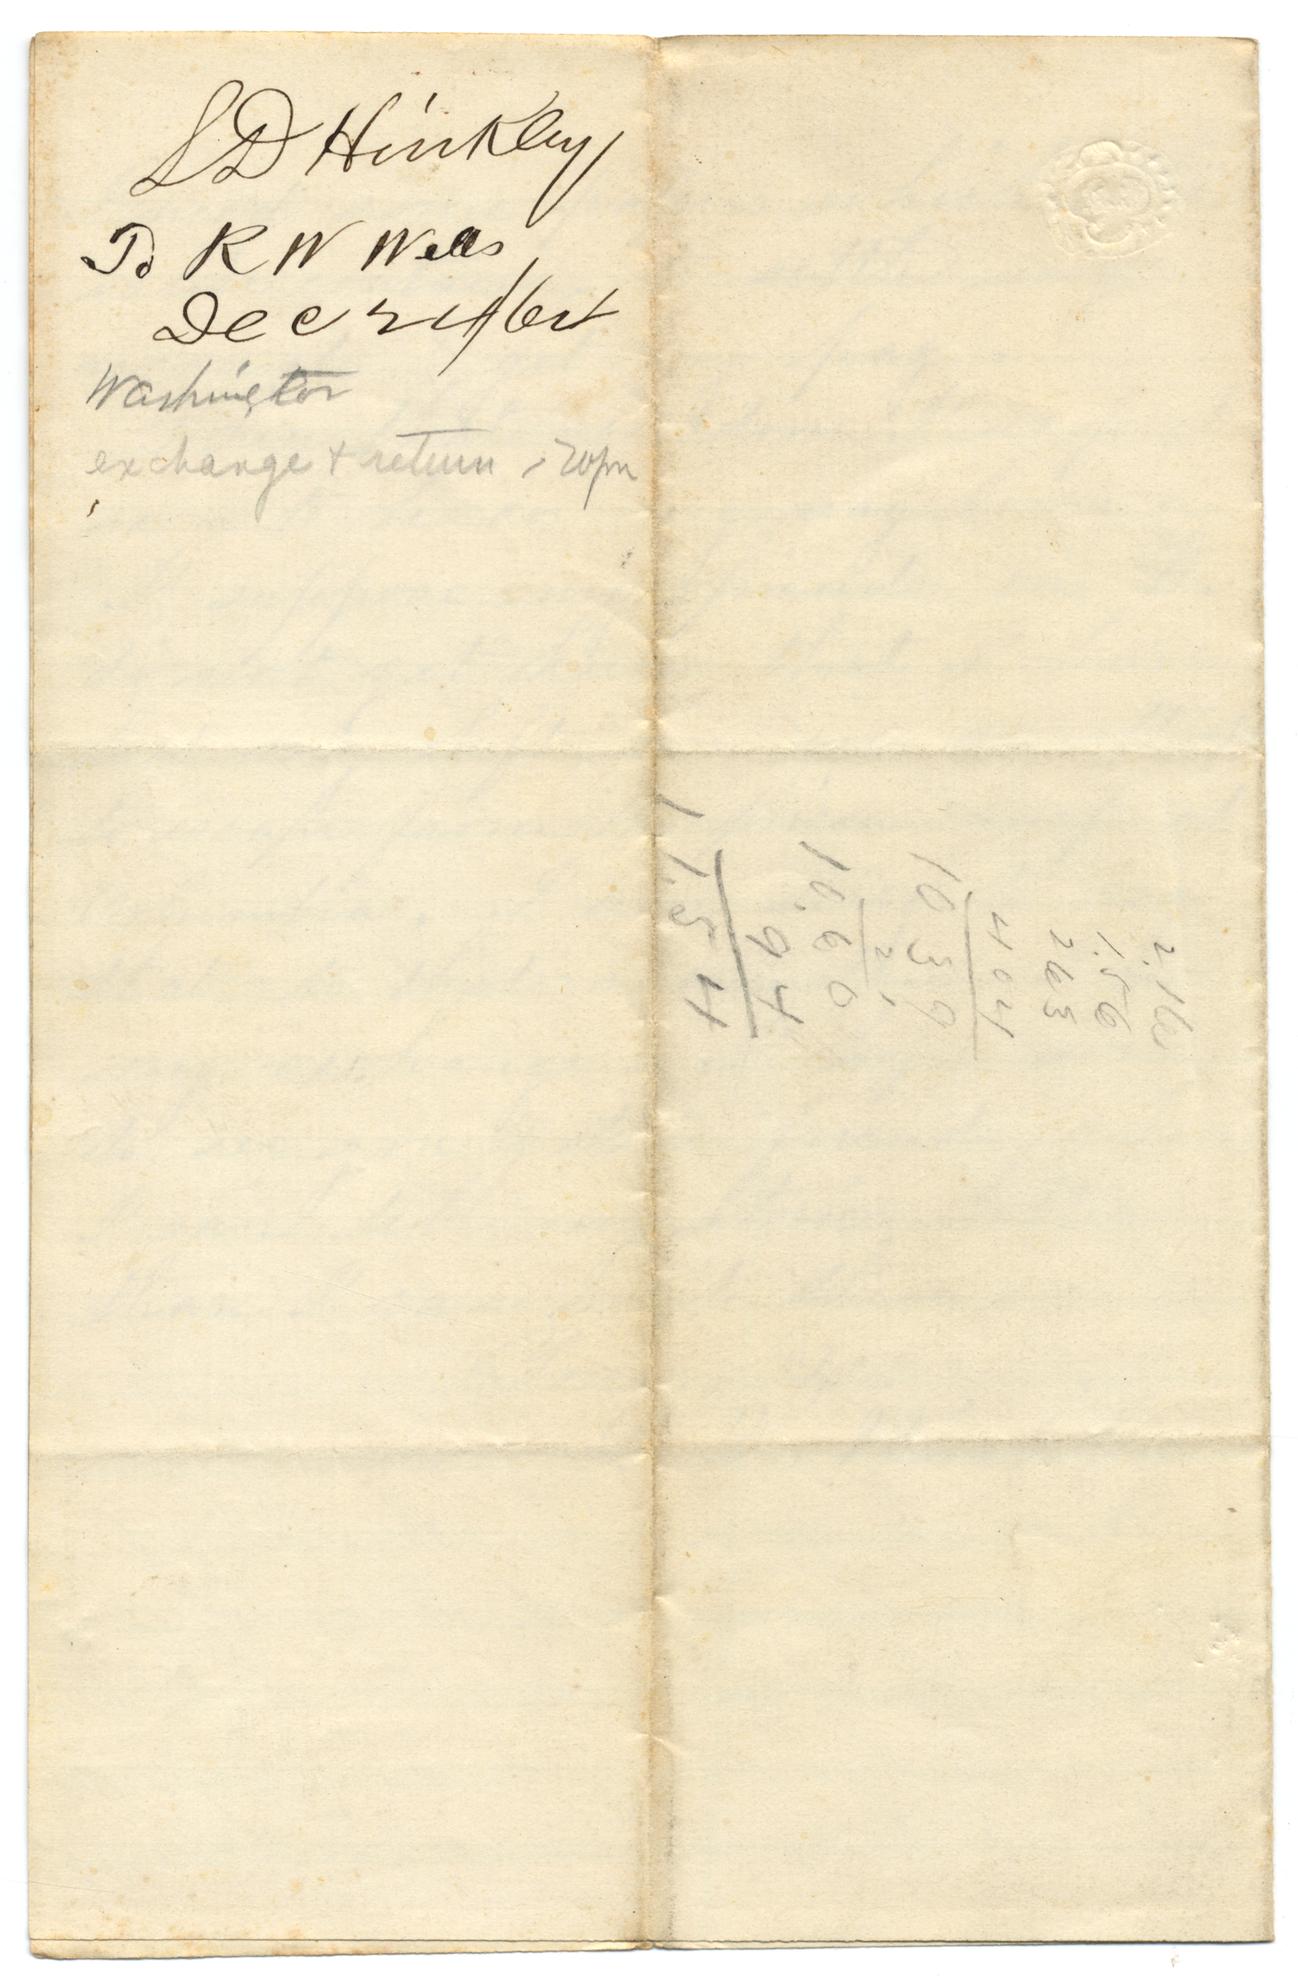 L D Hinkley
To R W Wells
Dec 21/61
Washington
exchange + return
2.16
1.56
2 63
4 04
10 39
2 1
10.60
94
11.54